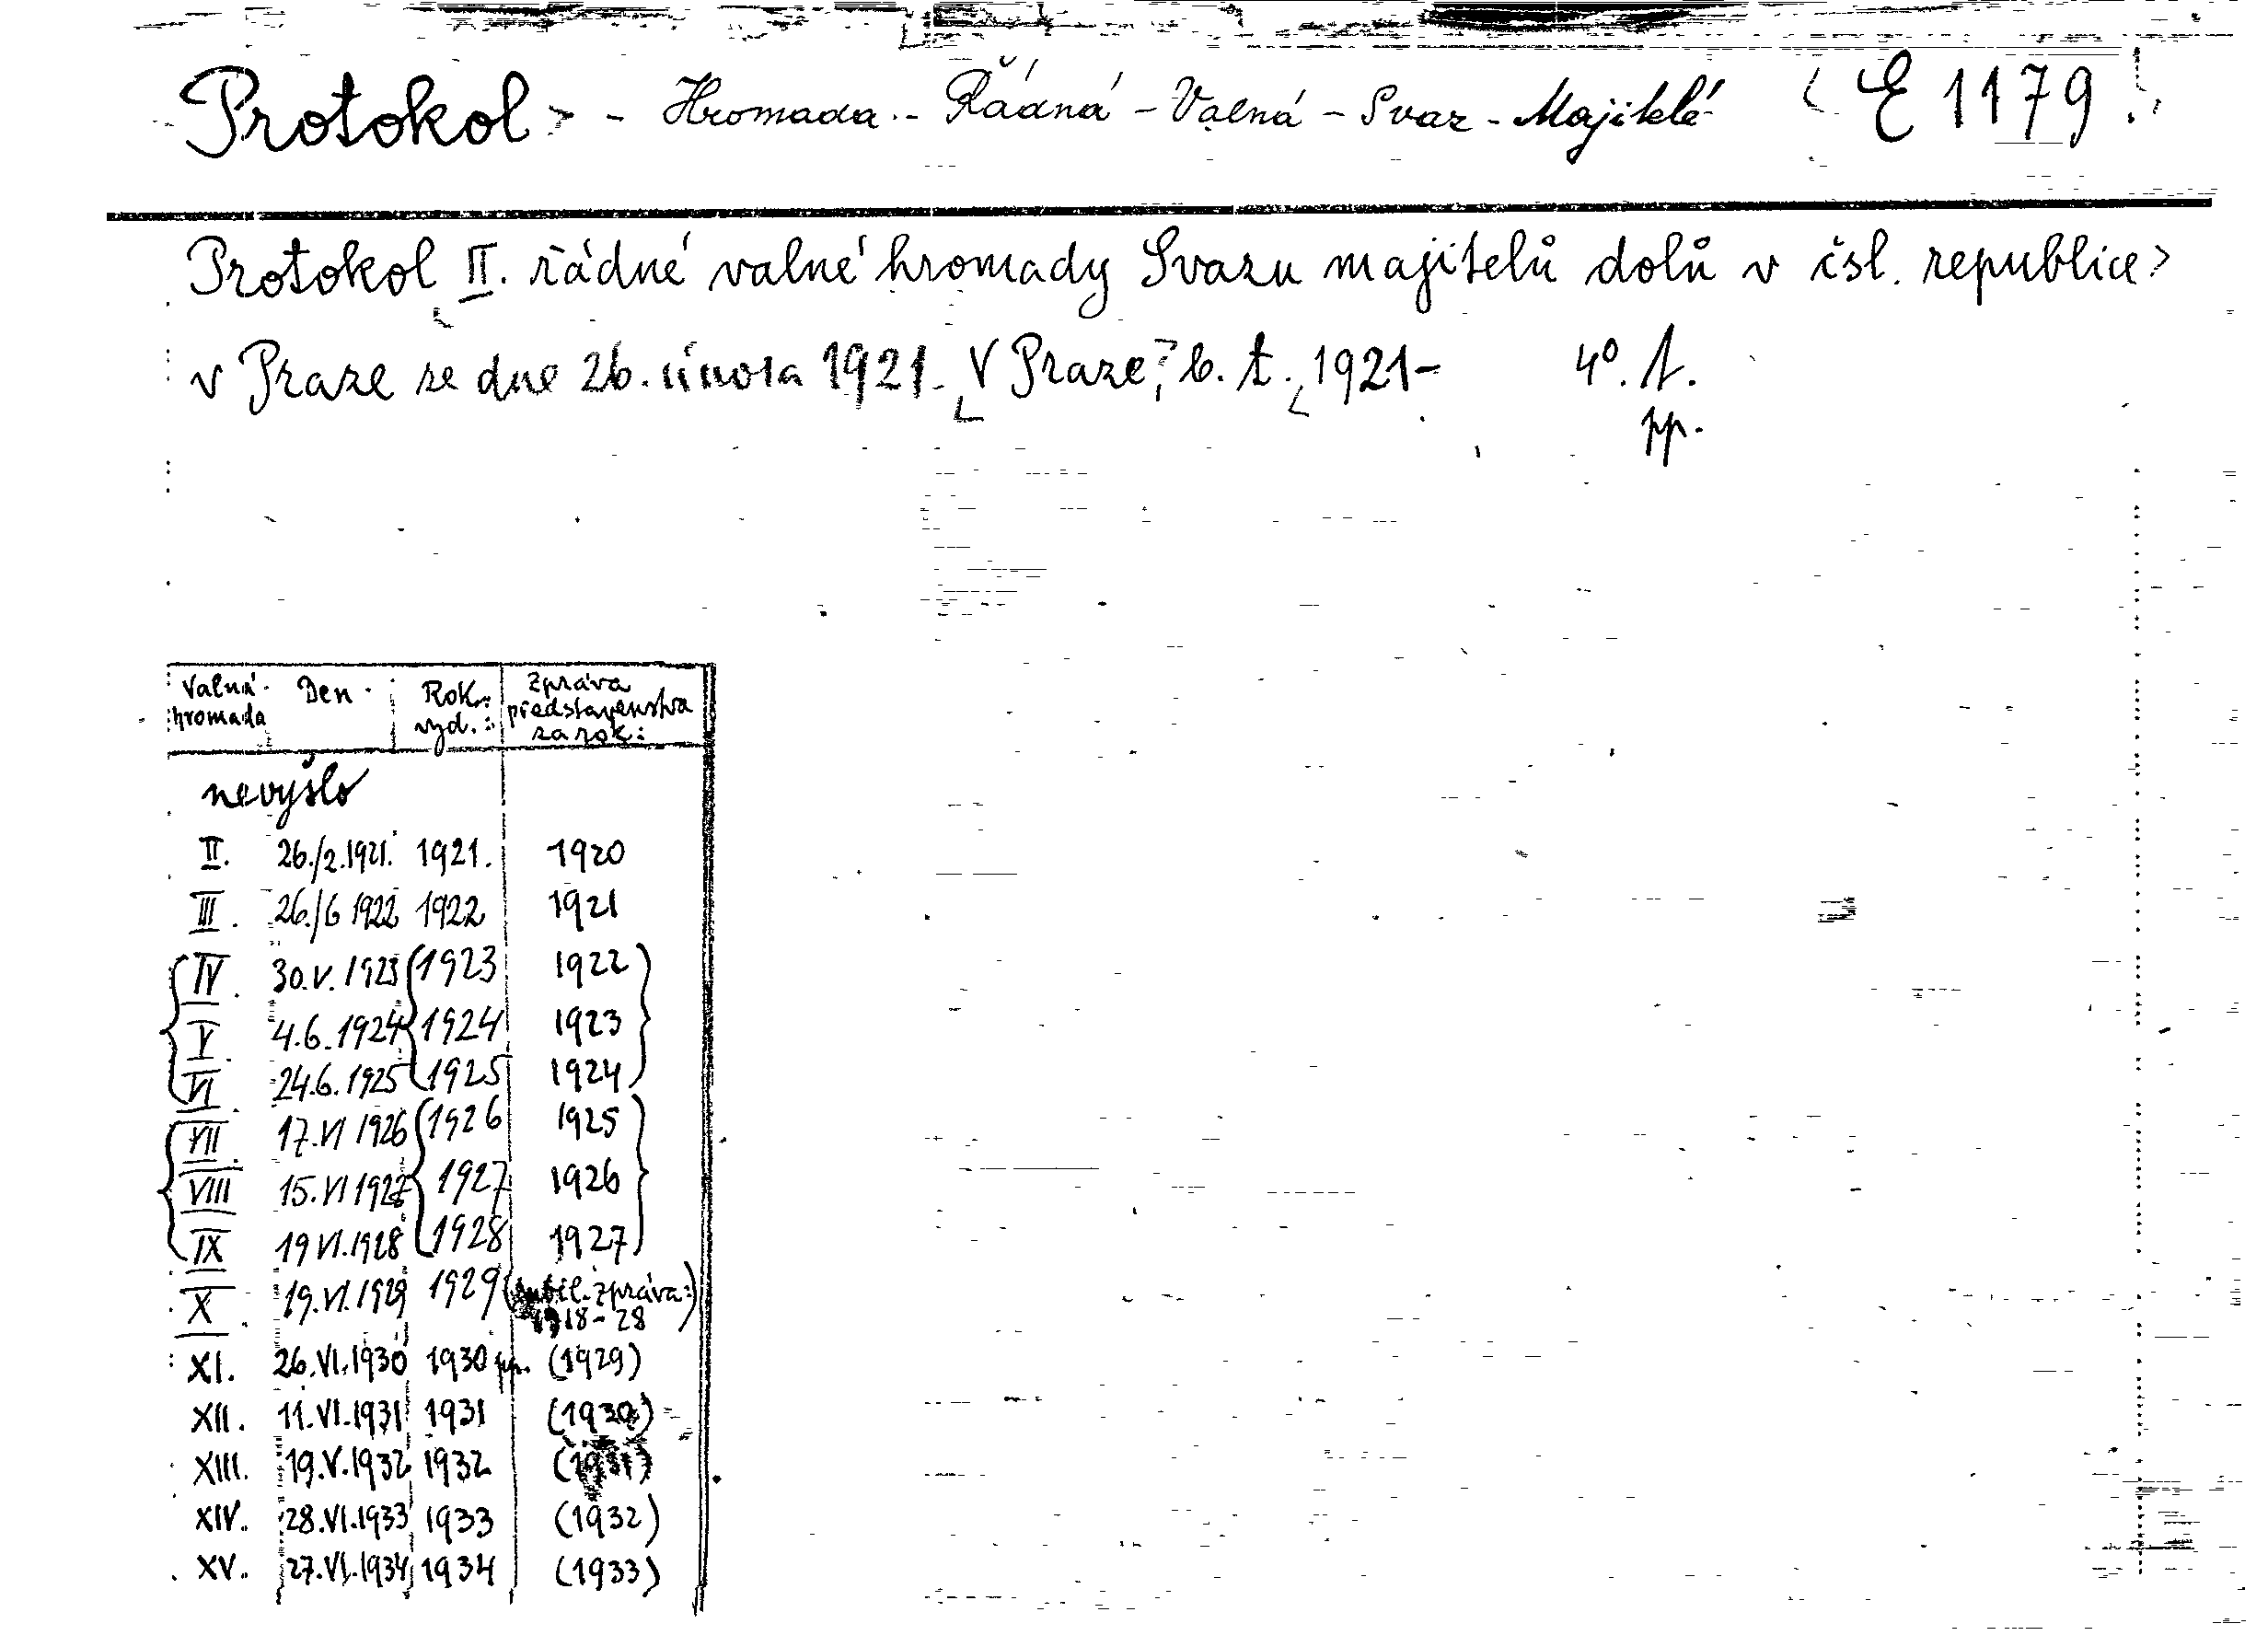 Protokol - Hromada - Řádná - Valná - Svaz - Majitelé E 1179.
Protokol II. řádné valné hromady Svazu majitelů dolů v čsl. republice
v Praze ze dne 26. února 1921. V Praze, b. t., 1921- 4°. 1.
pp.
Valná hromada Den Rok vyd.: Zpráva představenstva za rok:
nevyšlo
II. 26./2.1921. 1921. 1920
III. 26./6 1922 1922 1921
IV. 30.V. 1923 1923 1922
V. 4.6.1924 1924 1923
VI. 24.6.1925 1925 1924
VII. 17.VI 1926 1926 1925
VIII 15.VI 1927 1927 1926
IX 19 VI.1928 1928 1927
X. 19.VI.1929 1929 (jubil. zpráva: 1918-28)
XI. 26.VI.1930 1930 pp. (1929)
XII. 11.VI.1931 1931 (1930)
XIII. 19.V.1932 1932 (1931)
XIV. 28.VI.1933 1933 (1932)
XV. 27.VI.1934 1934 (1933)